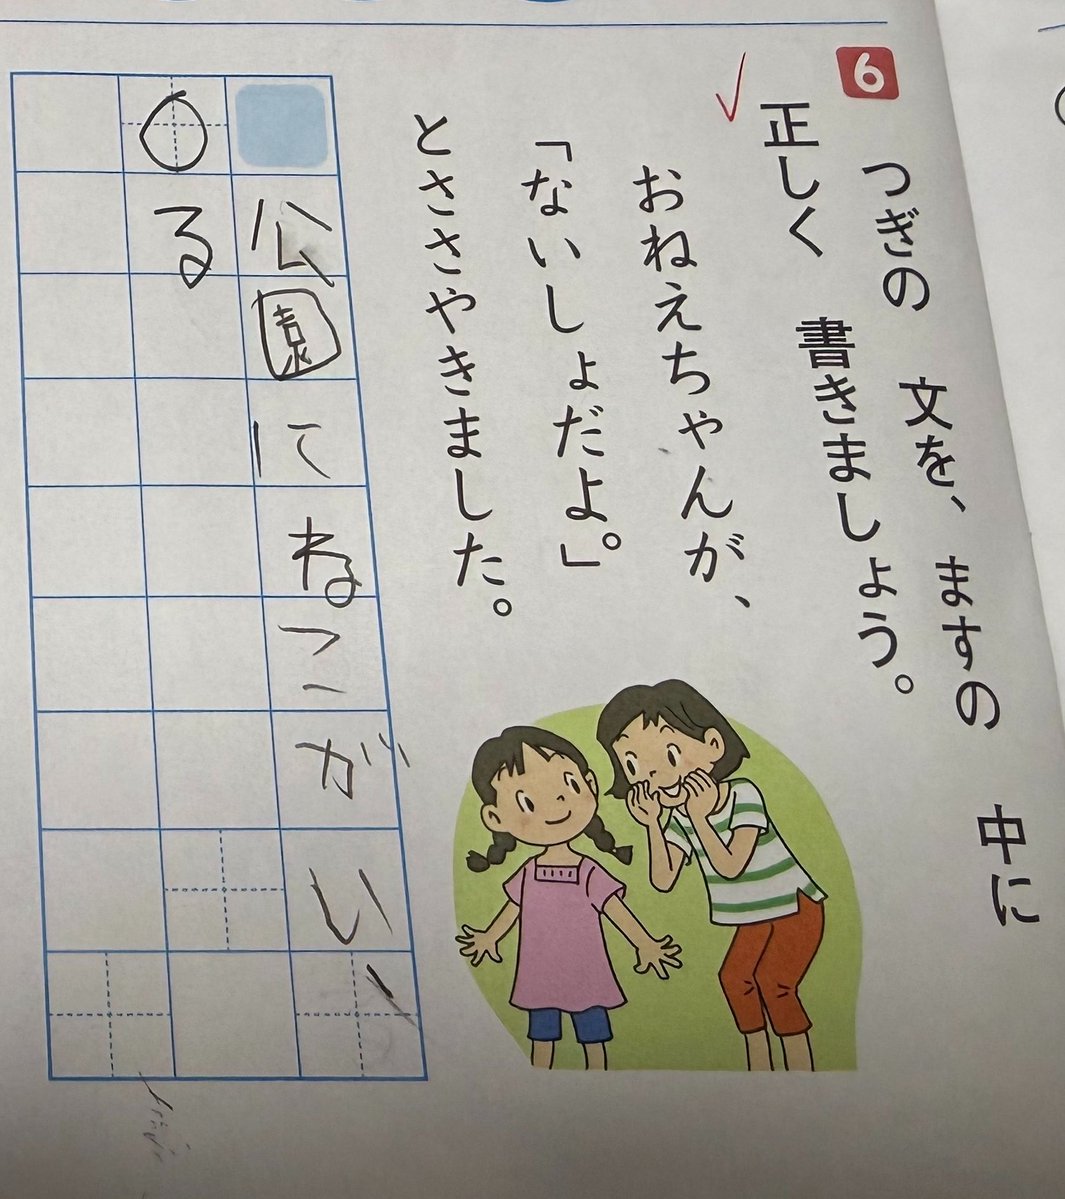 6
つぎの 文を、ますの 中に
正しく 書きましょう。
おねえちゃんが、
「ないしょだよ。」
とささやきました。
公園にねこがい、
○る